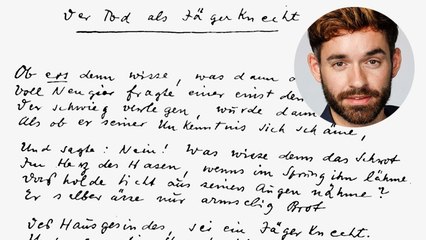 Der Tod als Jäger Knecht
Ob er's denn wisse, was dann
Voll Neugier fragte einer einst den
Der schwieg verlegen, wurde dann
Als ob er seiner Unkenntnis sich schäme,
Und sagte: Nein! Was wisse denn das Schrot
Im Herz des Hasen, wenns im Sprung ihn lähme
holde Licht aus seinen Augen nähme?
Er selber ässe nur armselig Brot
Des Hausgesindes, sei ein Jäger Knecht.